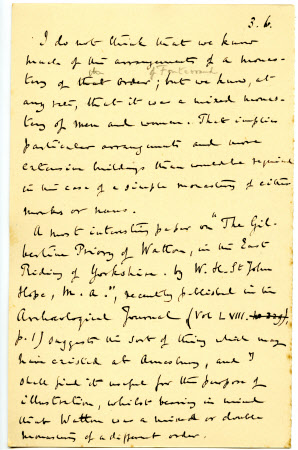 3.6.
I do not think that we know
much of the arrangements of a monas-
the of Fontevraud
tery of that order; but we know, at
any rate, that it was a mixed monas-
tery of men and women. That implies
particular arrangements and more
extensive buildings than would be required
in the case of a simple monastery of either
monks or nuns.
A most interesting paper on "The Gil-
bertine Priory of Watton, in the East
Riding of Yorkshire. by W. H. St John
Hope, M.A.", recently published in the
Archæological Journal (Vol LVIII.
p. 1) suggests the sort of thing which may
have existed at Amesbury, and I
shall find it useful for the purpose of
illustration, whilst bearing in mind
that Watton was a mixed or double
monastery of a different order.